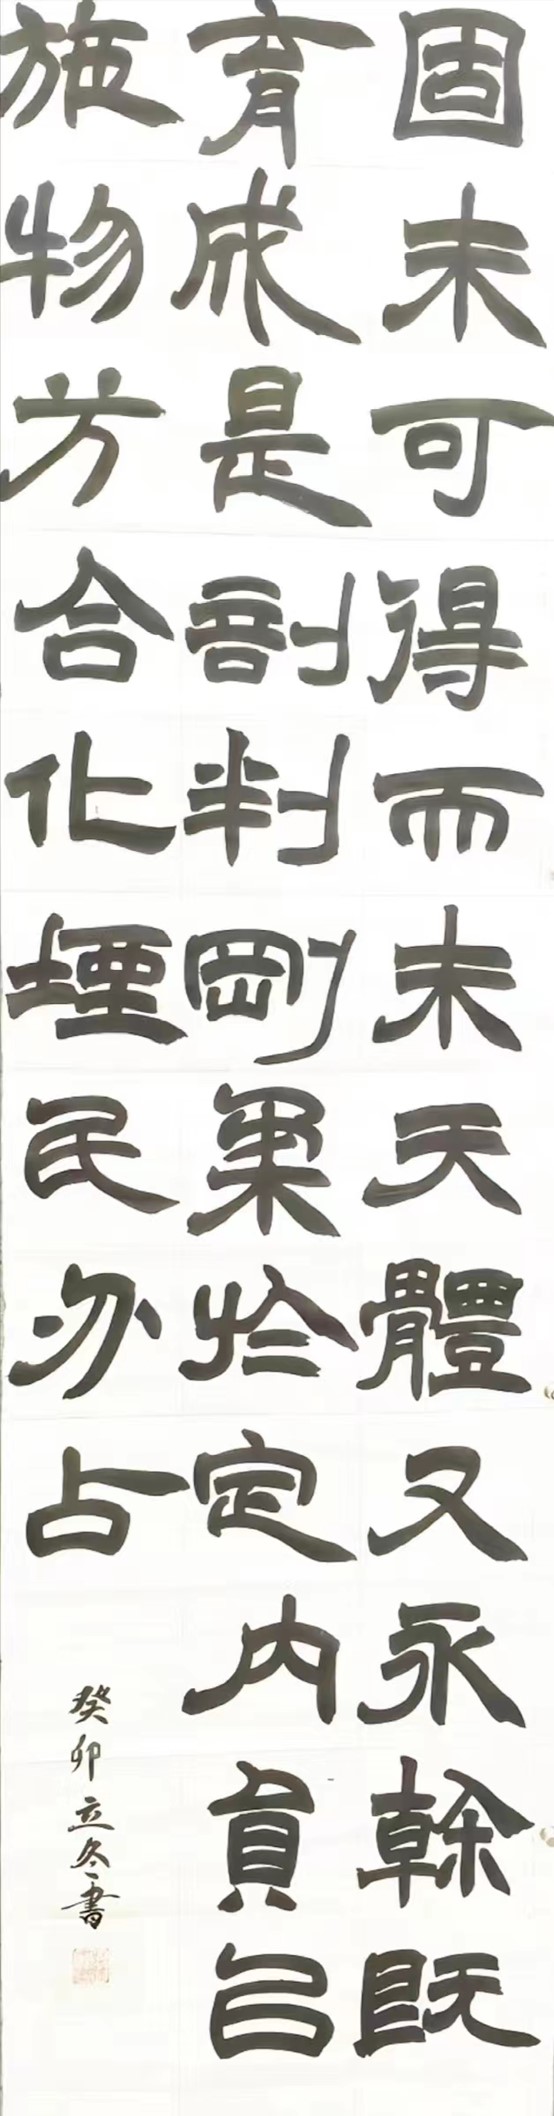 固未可得而未天體又永幹既
育成是剖判剛柔於定內員㠯
施物方合化堙民勿占
癸卯立冬書